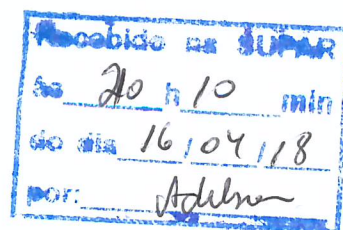 Recebido na SUPAR
às 20 h 10 min
do dia 16/04/18
por: Adelson